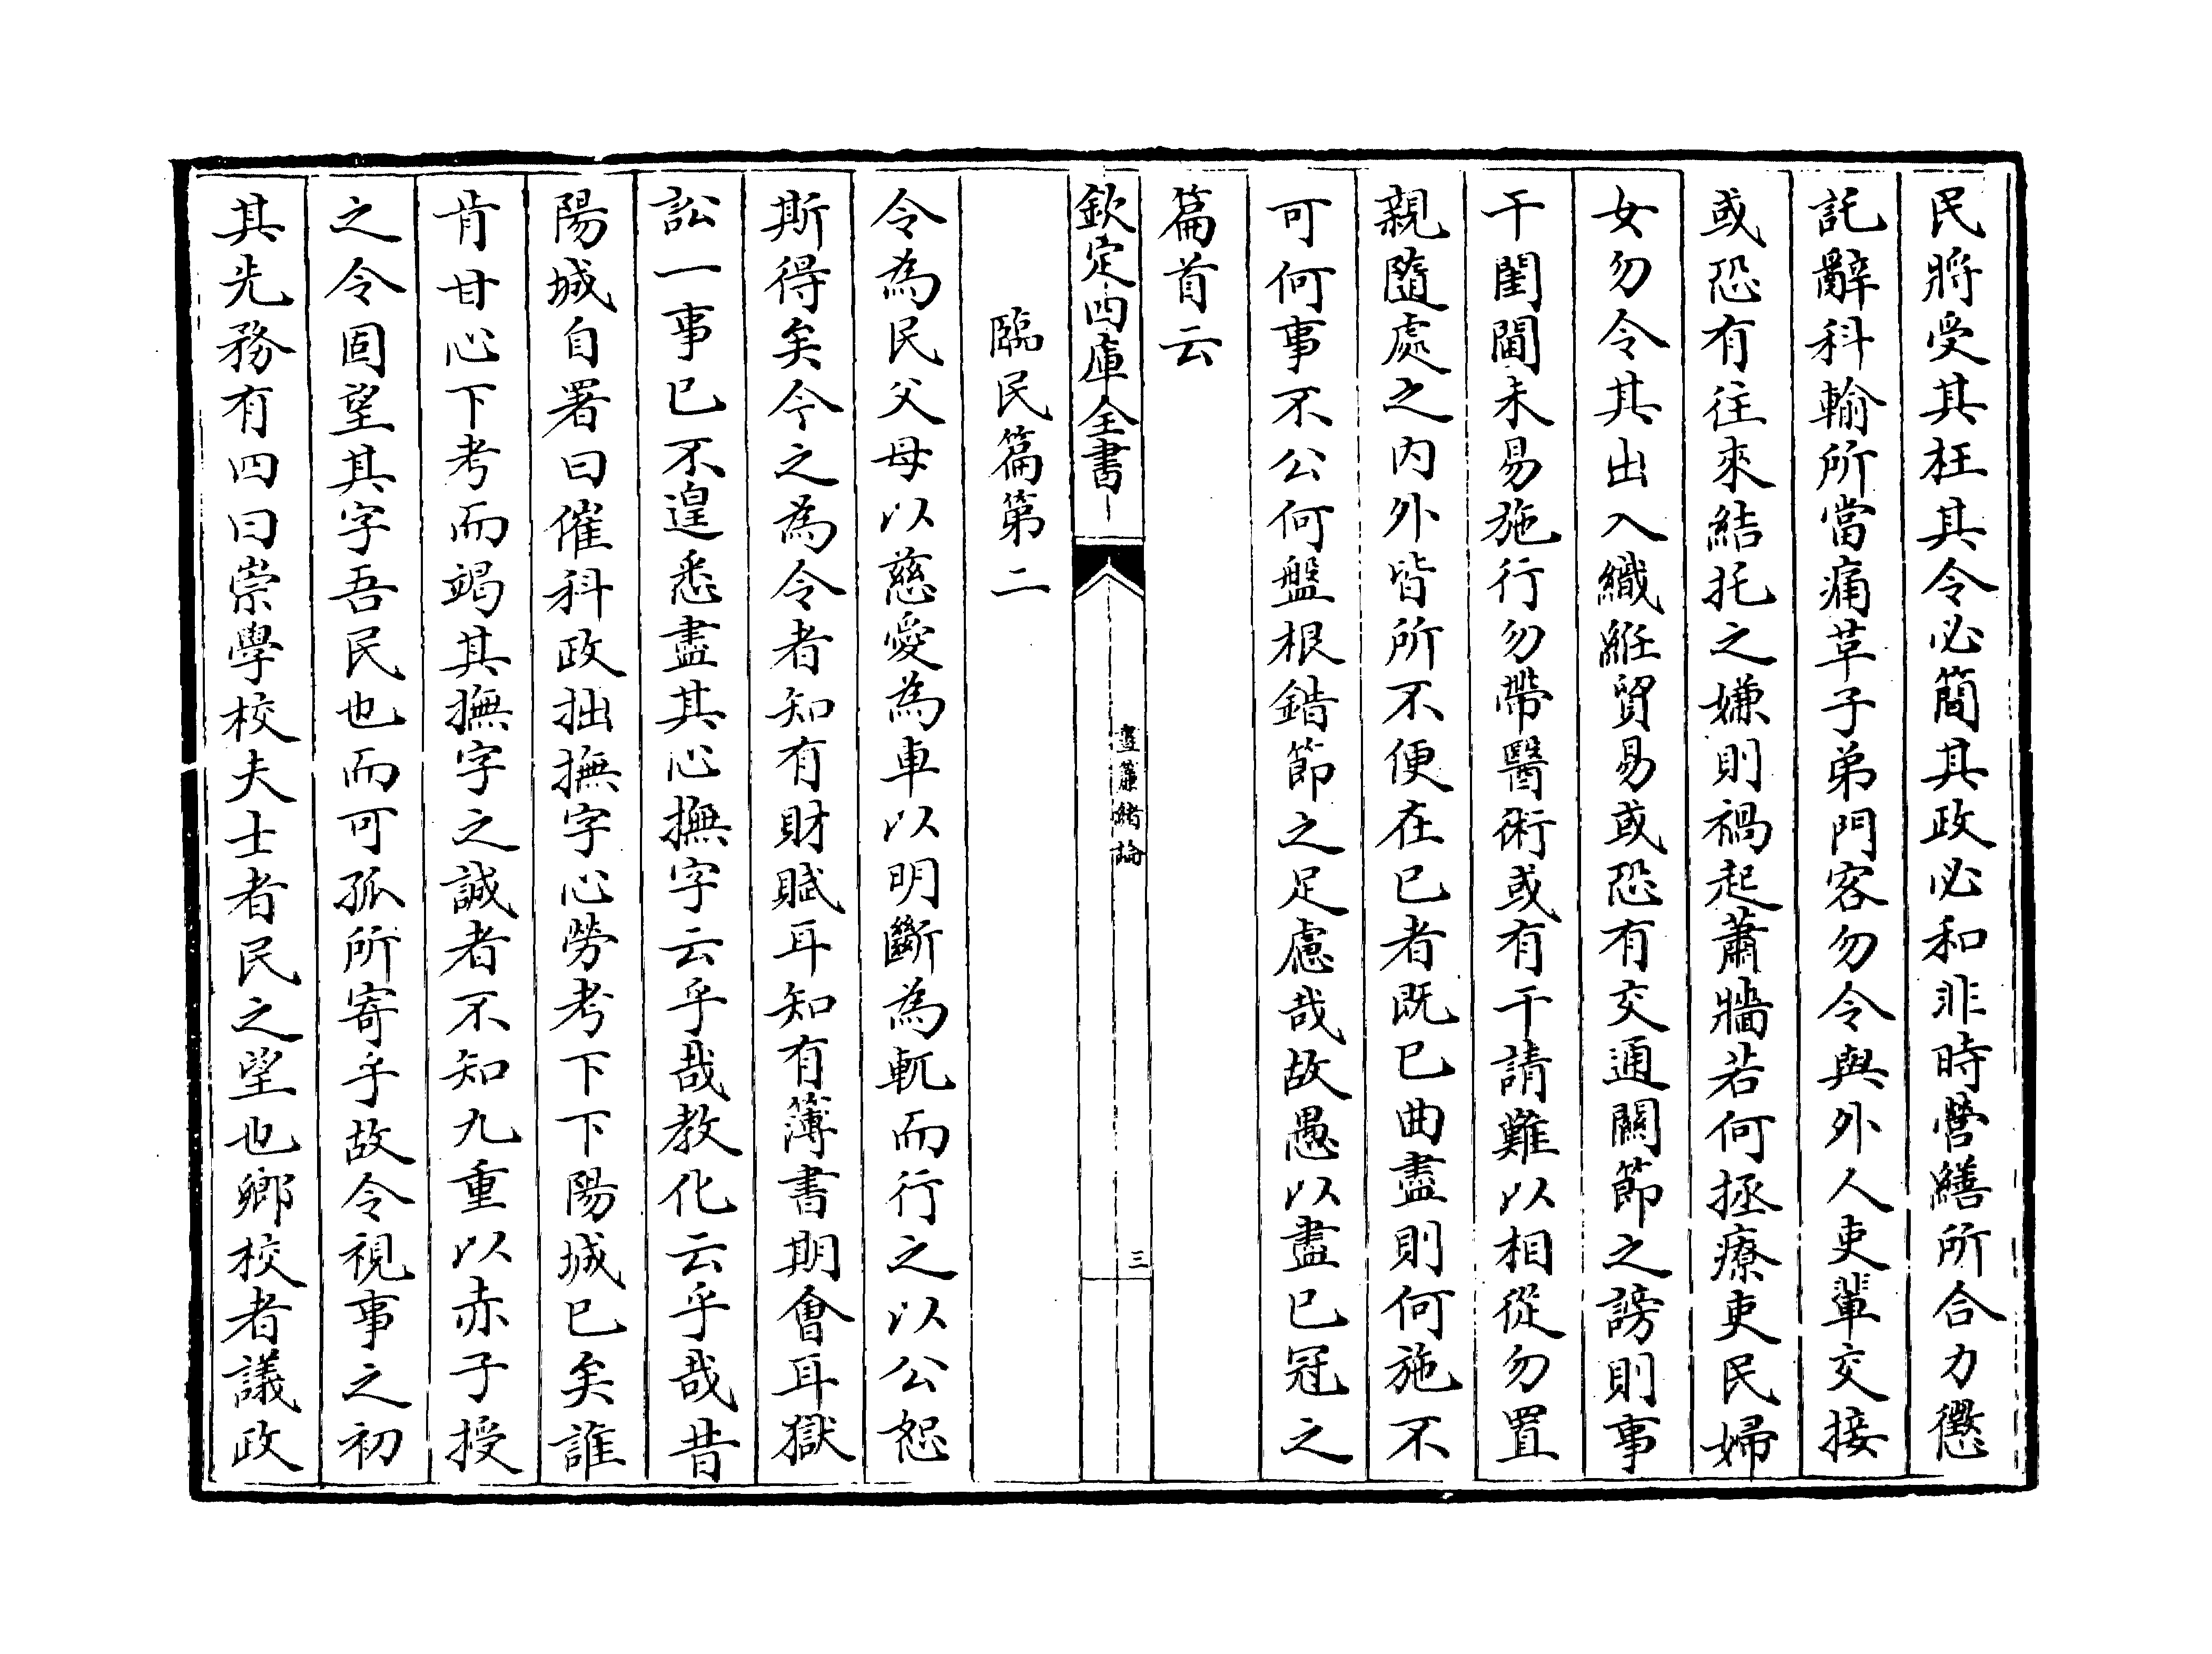 民將受其枉其令必簡其政必和非時營繕所合力懲
託辭科輸所當痛革子弟門客勿令與外人吏輩交接
或恐有往來結托之嫌則禍起蕭牆若何拯療吏民婦
女勿令其出入織絍貿易或恐有交通關節之謗則事
干閨閫未易施行勿帶醫術或有干請難以相從勿置
親隨處之内外皆所不便在已者既已曲盡則何施不
可何事不公何盤根錯節之足慮哉故愚以盡已冠之
篇首云
欽定四庫全書
晝簾緒論
三
臨民篇第二
令為民父母以慈愛為車以明斷為軏而行之以公恕
斯得矣今之為令者知有財賦耳知有簿書期會耳獄
訟一事已不遑悉盡其心撫字云乎哉教化云乎哉昔
陽城自署曰催科政拙撫字心勞考下下陽城已矣誰
肯甘心下考而竭其撫字之誠者不知九重以赤子授
之令固望其字吾民也而可孤所寄乎故令視事之初
其先務有四曰崇學校夫士者民之望也鄉校者議政